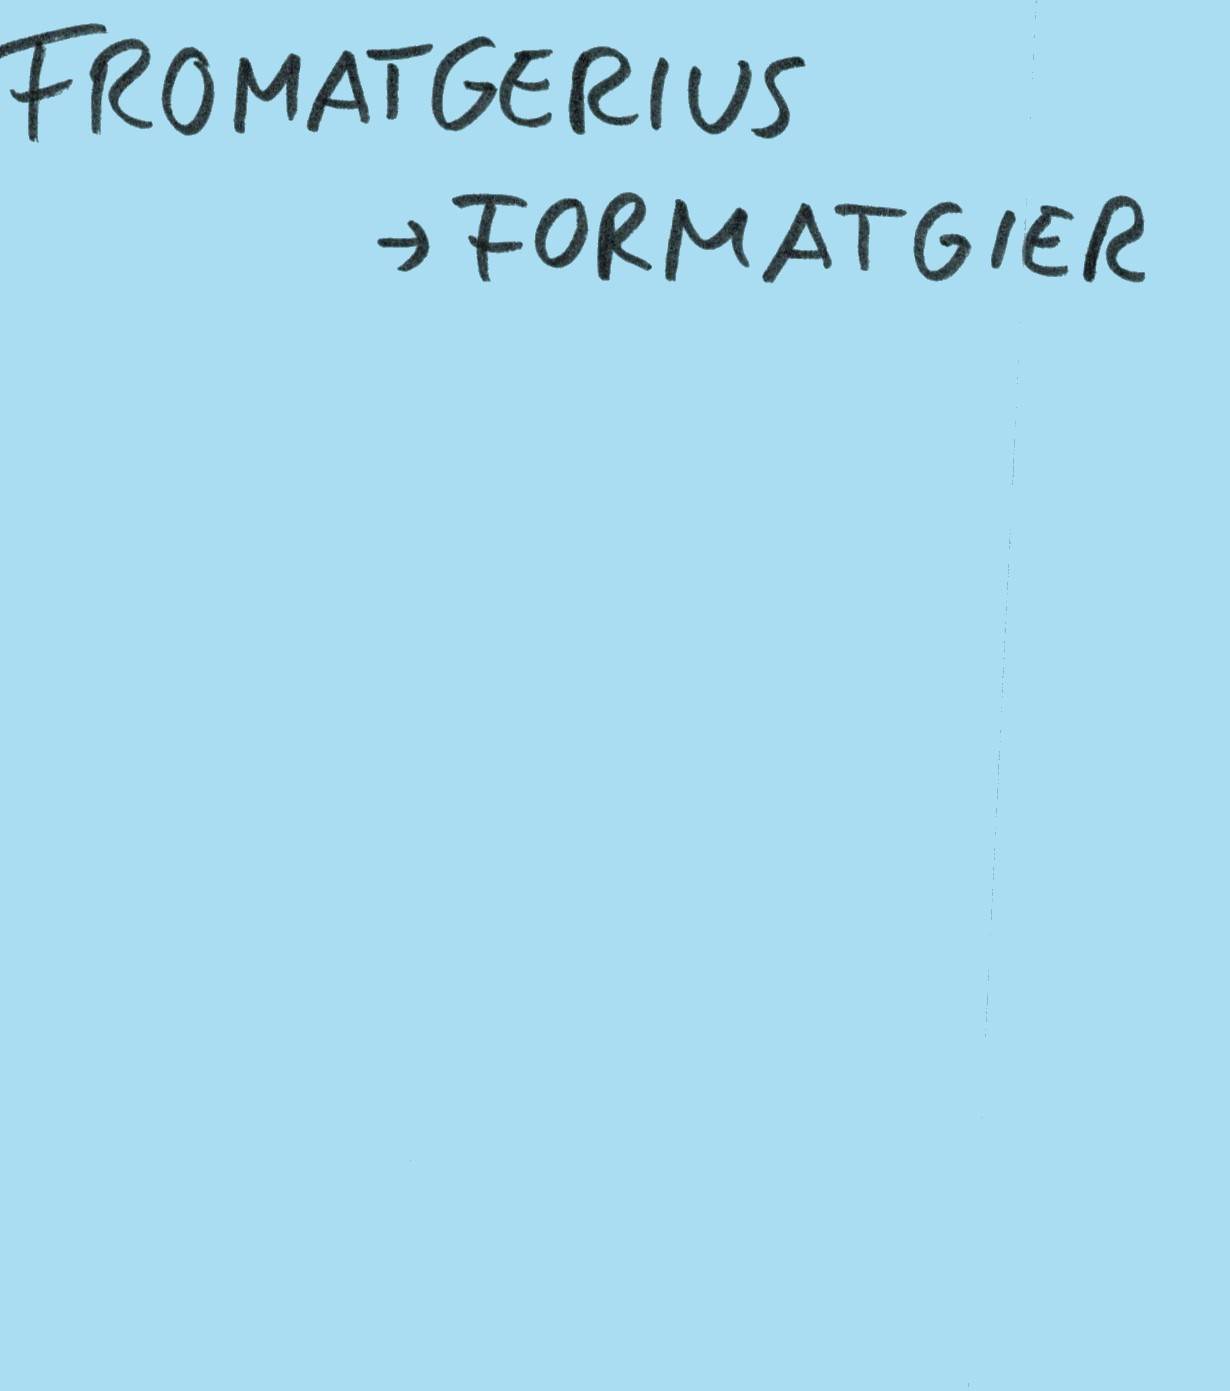 FROMATGERIUS
→ FORMATGIER